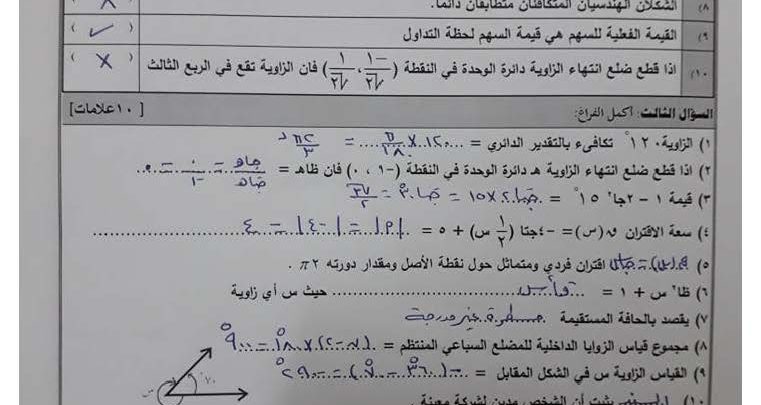 ٨) الشكلان الهندسيان المتكافئان متطابقان دائماً. ( × )
٩) القيمة الفعلية للسهم هي قيمة السهم لحظة التداول ( ✓ )
١٠) اذا قطع ضلع انتهاء الزاوية دائرة الوحدة في النقطة (-١/√٢ ، ١/√٢) فان الزاوية تقع في الربع الثالث ( × )
السؤال الثالث: أكمل الفراغ: [ ١٠ علامات]
١) الزاوية ١٢٠° تكافىء بالتقدير الدائري = ١٢٠ × π/١٨٠ = ٢π/٣
٢) اذا قطع ضلع انتهاء الزاوية هـ دائرة الوحدة في النقطة (-١ ، ٠) فان ظاهـ = جاهـ/جتاهـ = ٠/-١ = ٠
٣) قيمة ١ - ٢جا² ١٥° = جتا٢ × ١٥ = جتا٣٠° = √٣/٢
٤) سعة الاقتران ق(س) = -٤جتا (١/٢ س) + ٥ = |أ| = |-٤| = ٤
٥) ق(س) = جاس اقتران فردي ومتماثل حول نقطة الأصل ومقدار دورته ٢π .
٦) ظا² س + ١ = قا²س حيث س أي زاوية
٧) يقصد بالحافة المستقيمة مسطرة غير مدرجة
٨) مجموع قياس الزوايا الداخلية للمضلع السباعي المنتظم = (ن-٢) × ١٨٠° = ٩٠٠°
٩) القياس الزاوية س في الشكل المقابل = (٣٦٠° - ٧٠°) = ٢٩٠°
س ٧٠
١٠) يثبت أن الشخص مدين لشركة معينة .